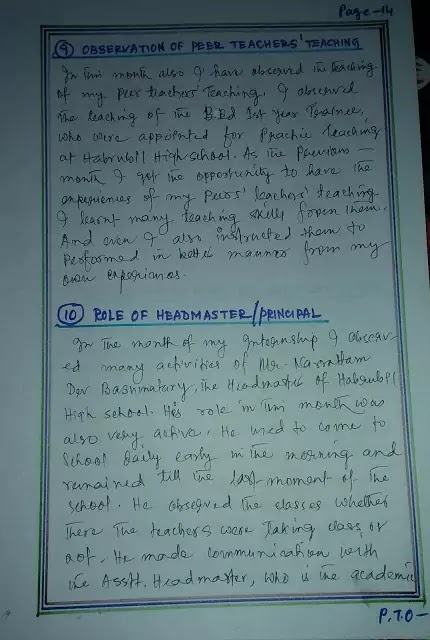 Page-14
(9) OBSERVATION OF PEER TEACHERS' TEACHING
In this month also I have observed the teaching
of my peer teachers' Teaching. I observed
the teaching of the B.Ed 1st year Trainee,
who were appointed for Practice teaching
at Habrubil High school. As the Previous —
month I got the opportunity to have the
experiences of my peers' teachers' teaching
I learnt many teaching skills from them.
And even I also instructed them to
performed in better manner from my
own experiences.
(10) ROLE OF HEADMASTER/PRINCIPAL
In the month of my Internship I observ-
ed many activities of Mr.
Dev Basumatary, the Headmaster of Habrubil
High school. His role in this month was
also very active. He used to come to
School daily early in the morning and
remained till the last moment of the
school. He observed the classes whether
there the teachers were taking class or
not. He made communication with
the Asstt. Headmaster, who is the academic
P.T.O-